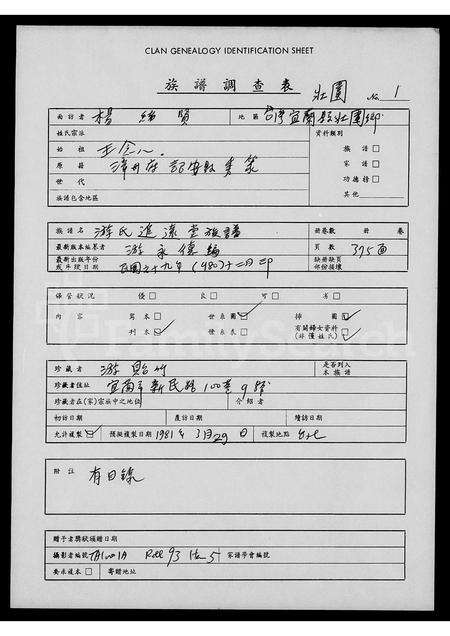 CLAN GENEALOGY IDENTIFICATION SHEET
族譜調查表 壯圍 No. 1
面訪者 楊緒賢 地區 台灣宜蘭縣壯圍鄉
姓氏宗派 資料類別
始祖 王念八 族譜□
原籍 漳州府詔安縣秀篆 家譜□
世代 功德榜□
族譜包含地區 其他
族譜名 游氏追遠堂族譜 冊卷數 冊 卷
最新版本編纂者 游永德編 頁數 375面
最新出版年份或年段日期 民國六十九年(1980)十二月印 缺冊缺頁部份損壞
保管狀況 優□ 良□ 可□ 劣□
內容 寫本□ 世系圖☑ 插圖☑
刊本☑ 譜系表□ 有關婦女資料(非僅姓氏)☑
珍藏者 游貽竹 是否列入本族譜
珍藏者住址 宜蘭市新民路100巷9號
珍藏者在(家)宗族中之地位 介紹者
初訪日期 應訪日期 續訪日期
允許複製☑ 預擬複製日期 1981年3月29日 複製地點 台北
附註 有目錄
贈予者獎狀頒贈日期
攝影者編號 TAIW1A Roll 93 Item 5 家譜學會編號
要求複本□ 寄贈地址